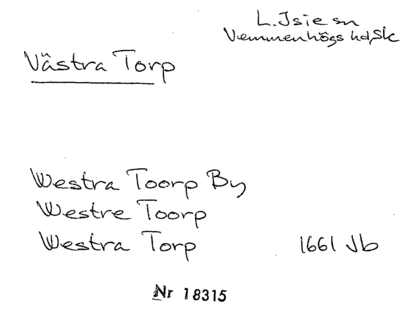 L. Isie sn
Vemmenhögs hd, Sk
Västra Torp
Westra Toorp By
Westre Toorp
Westra Torp 1661 Jb
Nr 18315